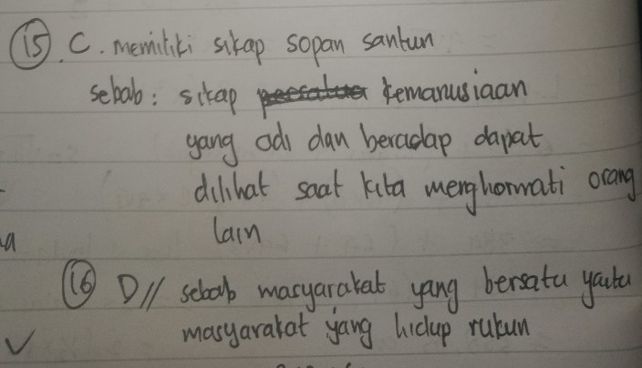 15. C. memiliki sikap sopan santun
sebab : sikap kemanusiaan
yang adi dan beradap dapat
dilihat saat kita menghormati orang
lain
a
16 D// sebab masyarakat yang bersatu yaitu
masyarakat yang hidup rukun